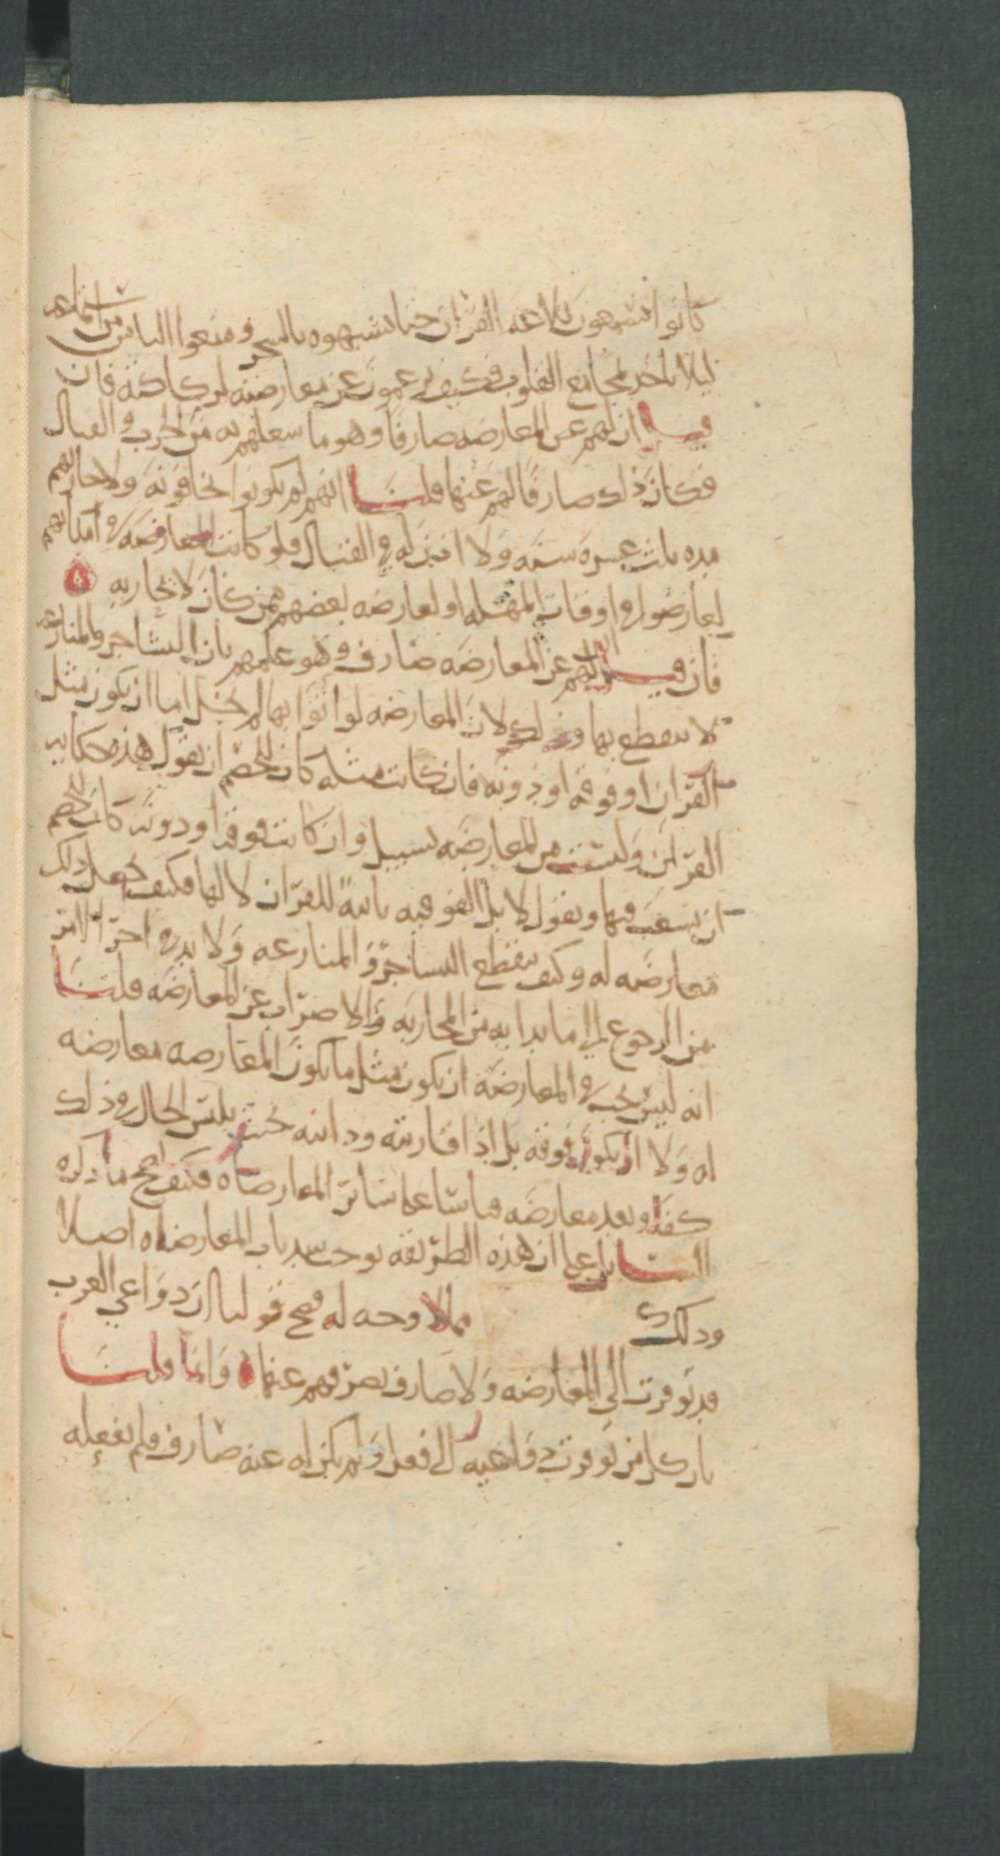 كانوا يستمعون بلاغة القران حتى شبهوه بالسحر ومنعوا الناس من استماعه
ليلا ياخذ بمجامع القلوب فكيف يرغبون عن معارضته لركاكته فان
قيل ان لهم عن المعارضه صارفا وهو ما شغلهم به من الحرب والقتال
فكان ذلك صارفا لهم عنها قلنا انهم لم يكونوا يخافونه ولا حاربهم
مده ثلاث عشره سنه ولا اذن له في القتال فلو كانت المعارضه في امكانهم
لعارضوا في اوقات المهله او لعارضه بعضهم ممن كان لا يحاربه
فان قيل ان لهم عن المعارضه صارف وهو علمهم بان التشاجر والمنازعه
لا تنقطع بها وذلك لان المعارضه لو اتوا بها لم يخل اما ان يكون مثل
القران او فوقه او دونه فان كانت مثله كان للخصم ان يقول هذه حكايه
القران وليست من المعارضه بسبيل وان كانت فوقه او دونه كان للخصم
ان يشغب فيها ويقول لا بل الفوقيه ثابتة للقران لا لها فكيف يجعل ذلك
معارضه له وكيف ينقطع التشاجر والمنازعه ولا بد في اخر الامر
من الرجوع الى ما بدا به من المحاربه والاضراب عن المعارضه قلنا
انه ليس يجب في المعارضه ان يكون مثل ما يكون المعارضه معارضه
له ولا ان يكون فوقه بل اذا قاربته ودانته بحيث يلتبس الحال في ذلك
كفا ويعد معارضه قياسا على سائر المعارضاه فكيف يصح ما ذكره
السايل على ان هذه الطريقه توجب سد باب المعارضاه اصلا
وذلك مما لا وجه له فصح قولنا ان دواعي العرب
قد توفرت الى المعارضه ولا صارف يصرفهم عنها وانما قلنا
بان كل من توفرت دواعيه الى فعل ولم يكن له عنه صارف فلم يفعله